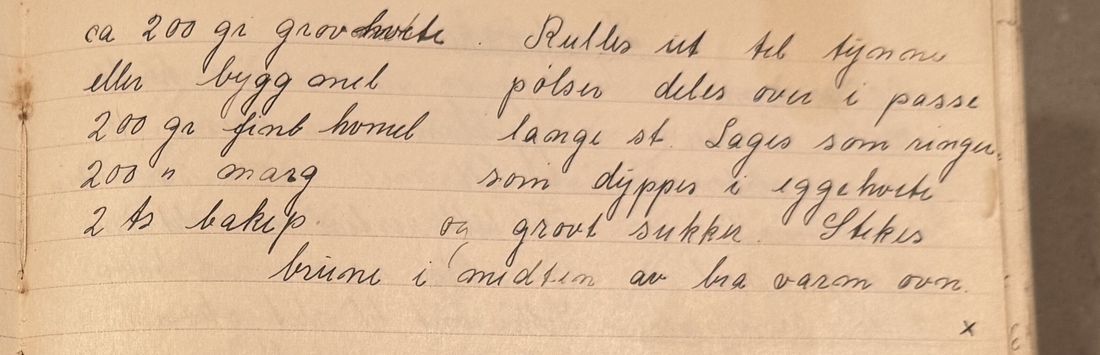 ca 200 gr grovhvete. Rulles ut tel tynne
eller bygg mel pølser deles over i passe
200 gr fint hvmel lange st. Lages som ringer.
200 " marg som dyppes i eggehvete
2 ts bakep. og grovt sukker. Stekes
brune i midten av bra varm ovn.
x